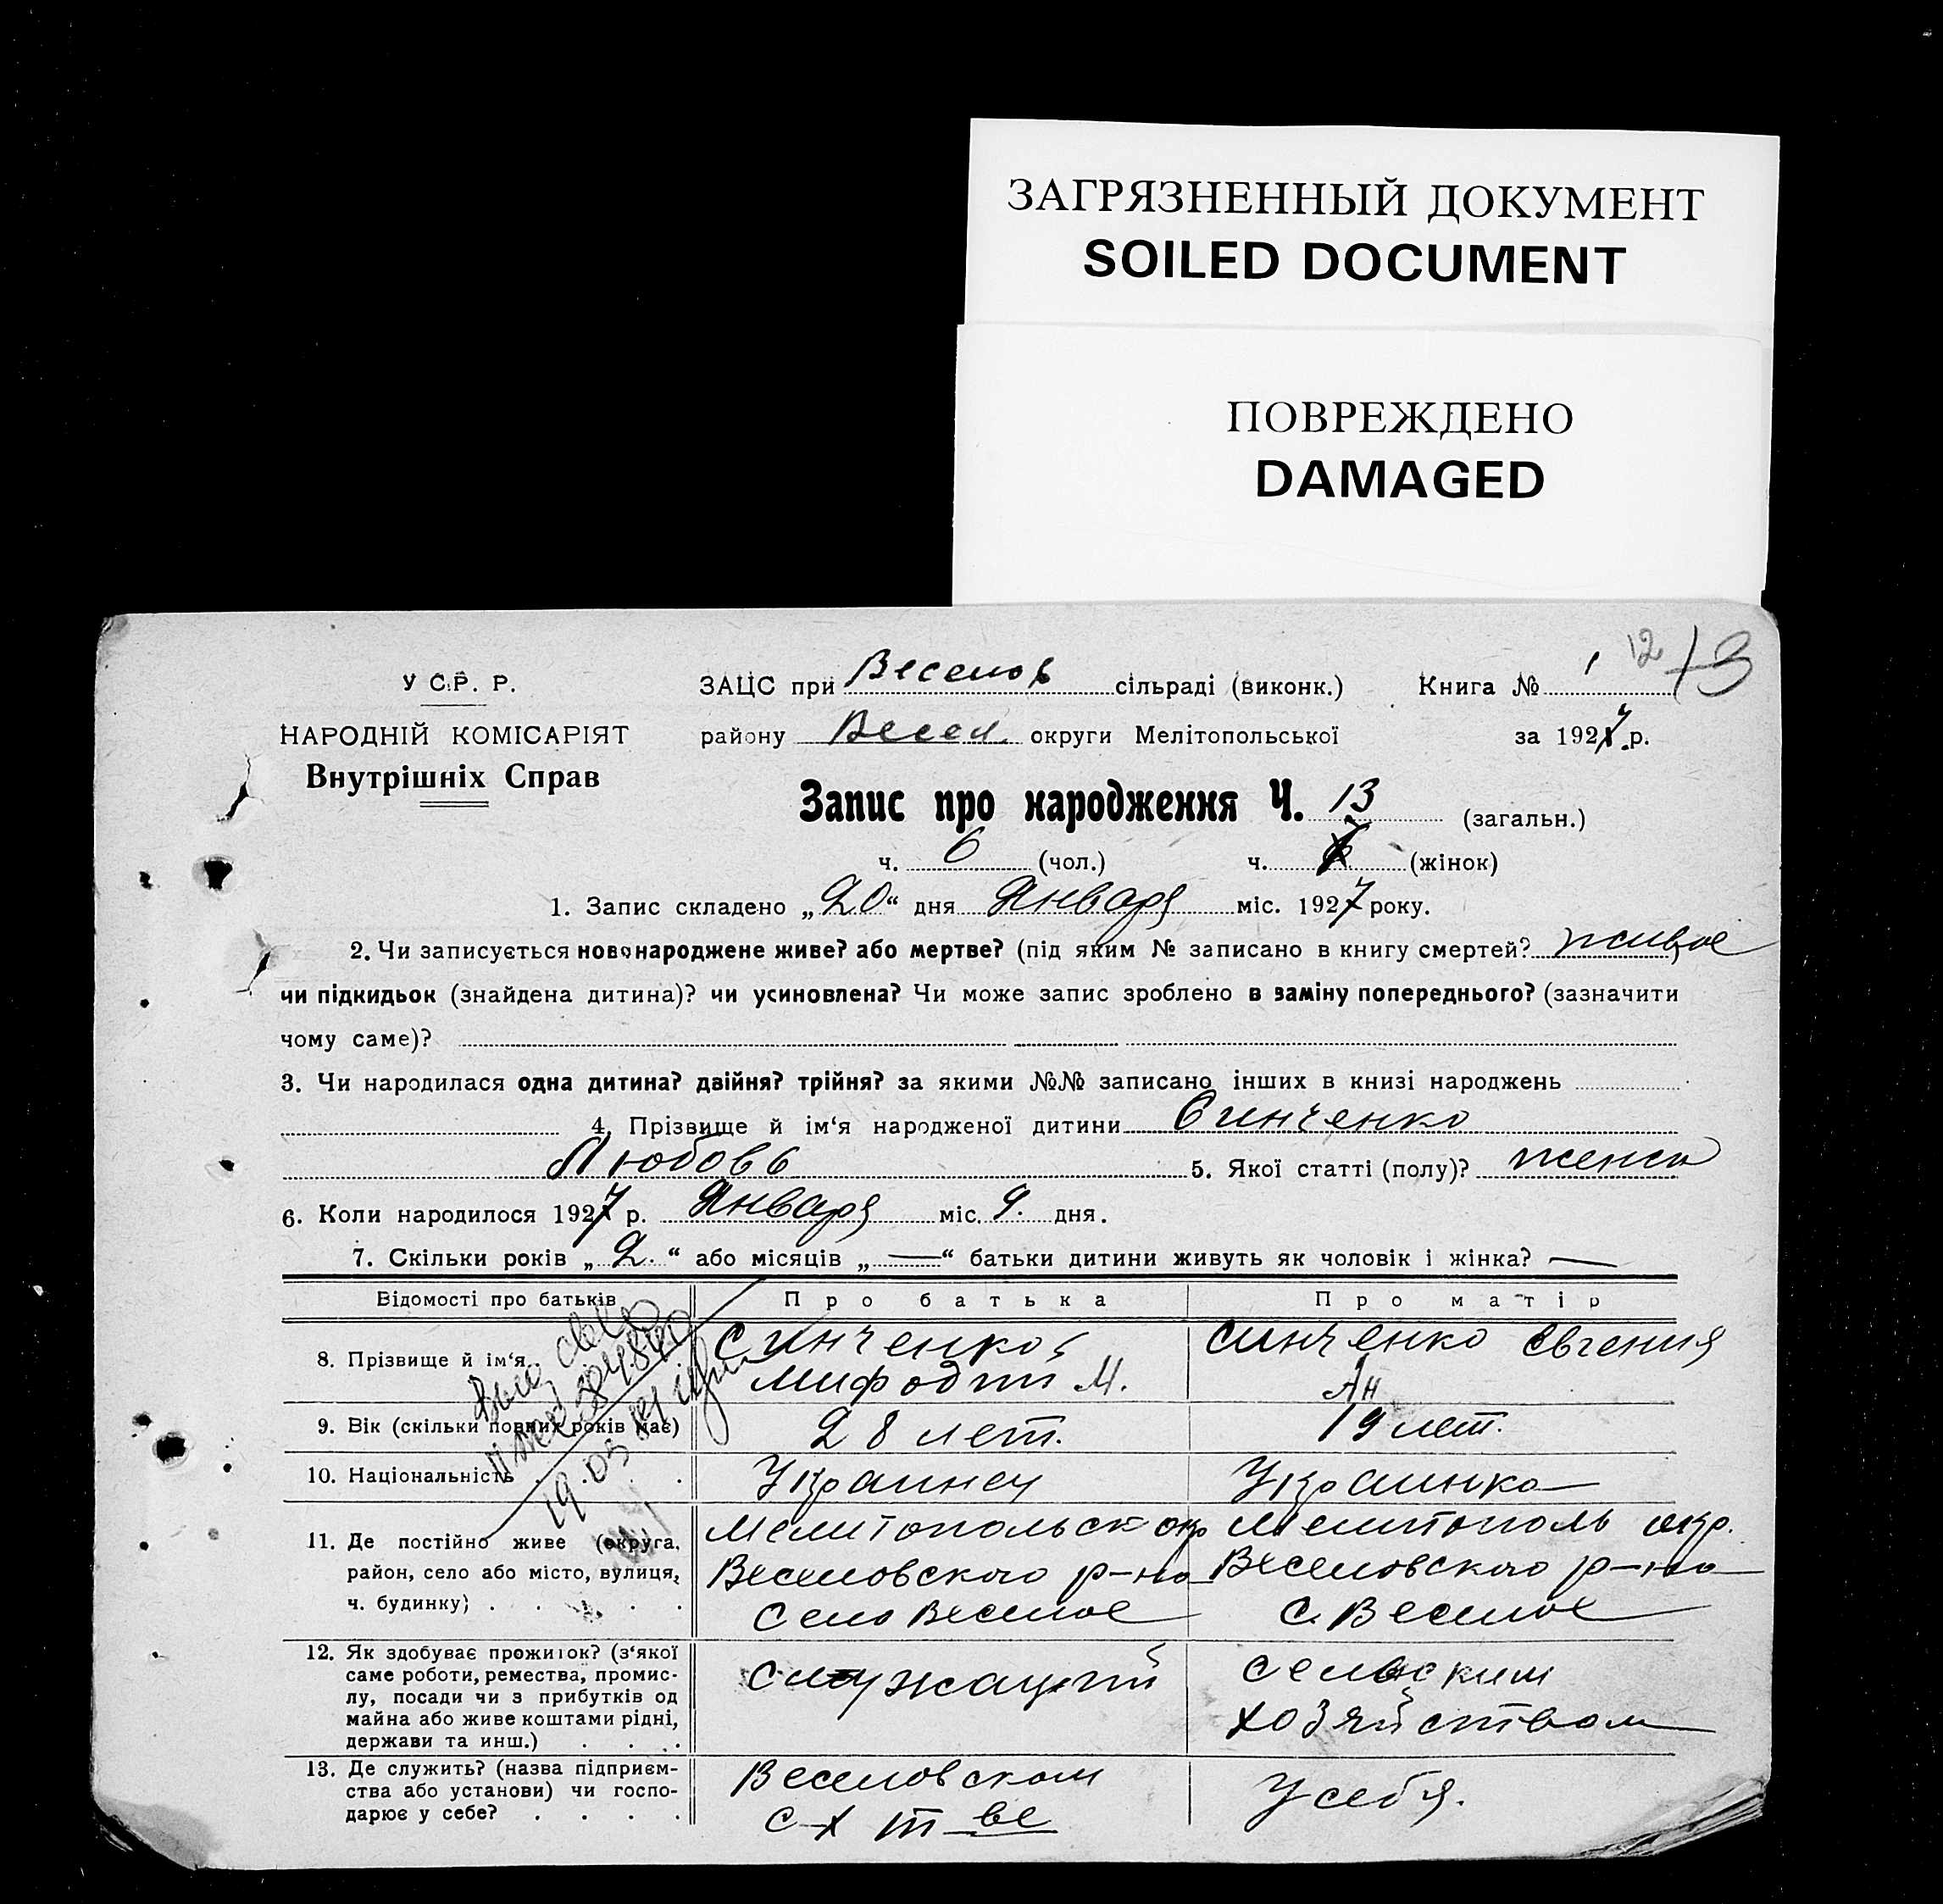 ЗАГРЯЗНЕННЫЙ ДОКУМЕНТ
SOILED DOCUMENT
ПОВРЕЖДЕНО
DAMAGED
12 13
У С.Р. Р.
ЗАЦС при Веселов сільраді (виконк.) Книга № 1
НАРОДНІЙ КОМІСАРІЯТ
Внутрішніх Справ
району Весел. округи Мелітопольської за 1927 р.
Запис про народження Ч. 13 (загальн.)
ч. 6 (чол.) ч. (жінок)
1. Запис складено „20“ дня Января міс. 1927 року.
2. Чи записується новонароджене живе? або мертве? (під яким № записано в книгу смертей? живое)
чи підкидьок (знайдена дитина)? чи усиновлена? Чи може запис зроблено в заміну попереднього? (зазначити
чому саме)?
3. Чи народилася одна дитина? двійня? трійня? за якими №№ записано інших в книзі народжень
4. Прізвище й ім‘я народженої дитини Синченко
Любовь 5. Якої статті (полу)? женск
6. Коли народилося 1927 р. Января міс. 9. дня.
7. Скільки років „2.“ або місяців „—“ батьки дитини живуть як чоловік і жінка? —
Відомості про батьків Про батька Про матір
8. Прізвище й ім‘я. Синченко Мифодий М. Синченко Евгения Ан
9. Вік (скільки повних років має) 28 лет. 19 лет.
10. Національність Украинец Украинка
11. Де постійно живе (округа, Мелитопольск окр Мелитополь окр.
район, село або місто, вулиця, Веселовского р-на Веселовского р-на
ч. будинку) Село Веселое с. Веселое
12. Як здобуває прожиток? (з‘якої
саме роботи, ремества, промис- служащий сельским
лу, посади чи з прибутків од
майна або живе коштами рідні, хозяйством
держави та инш.)
13. Де служить? (назва підприєм- Веселовском
ства або установи) чи госпо- У себя.
дарює у себе? с-х т-ве